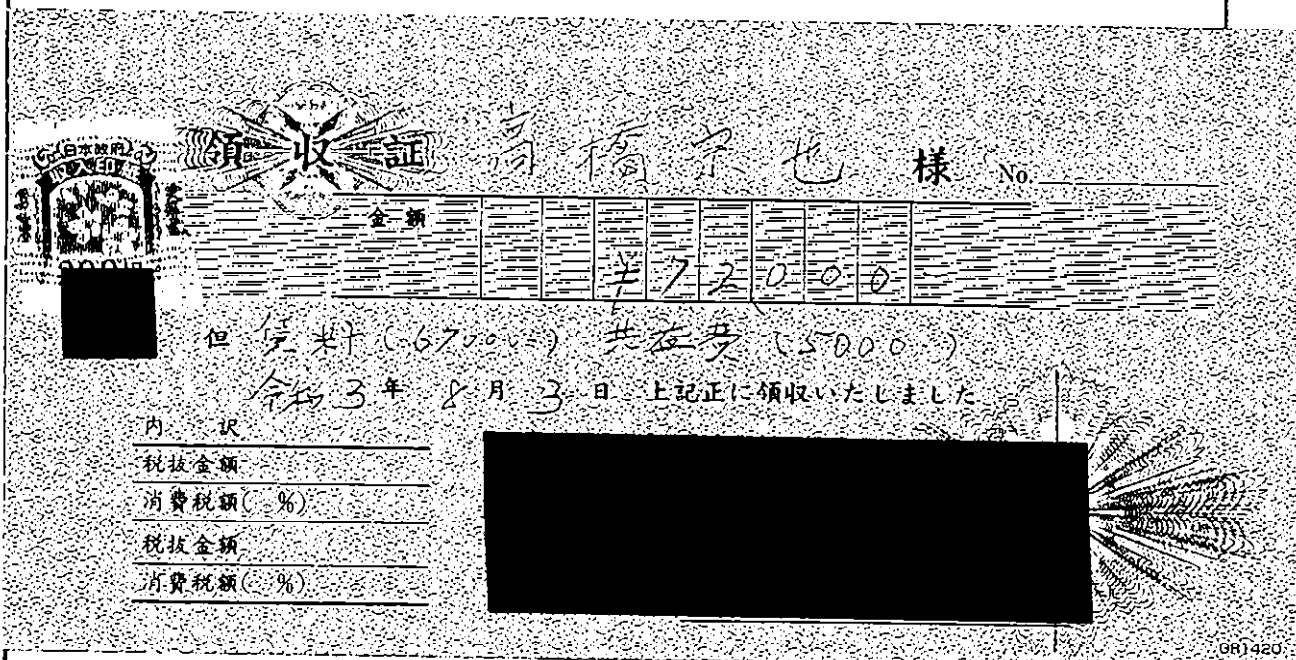 日本政府
収入印紙
200円
領収証 高橋宗也 様 No.
金額 ¥72000
但 賃料(67000-) 共益費(5000-)
令和3年 8月 3日 上記正に領収いたしました
内 訳
税抜金額
消費税額( %)
税抜金額
消費税額( %)
GR1420